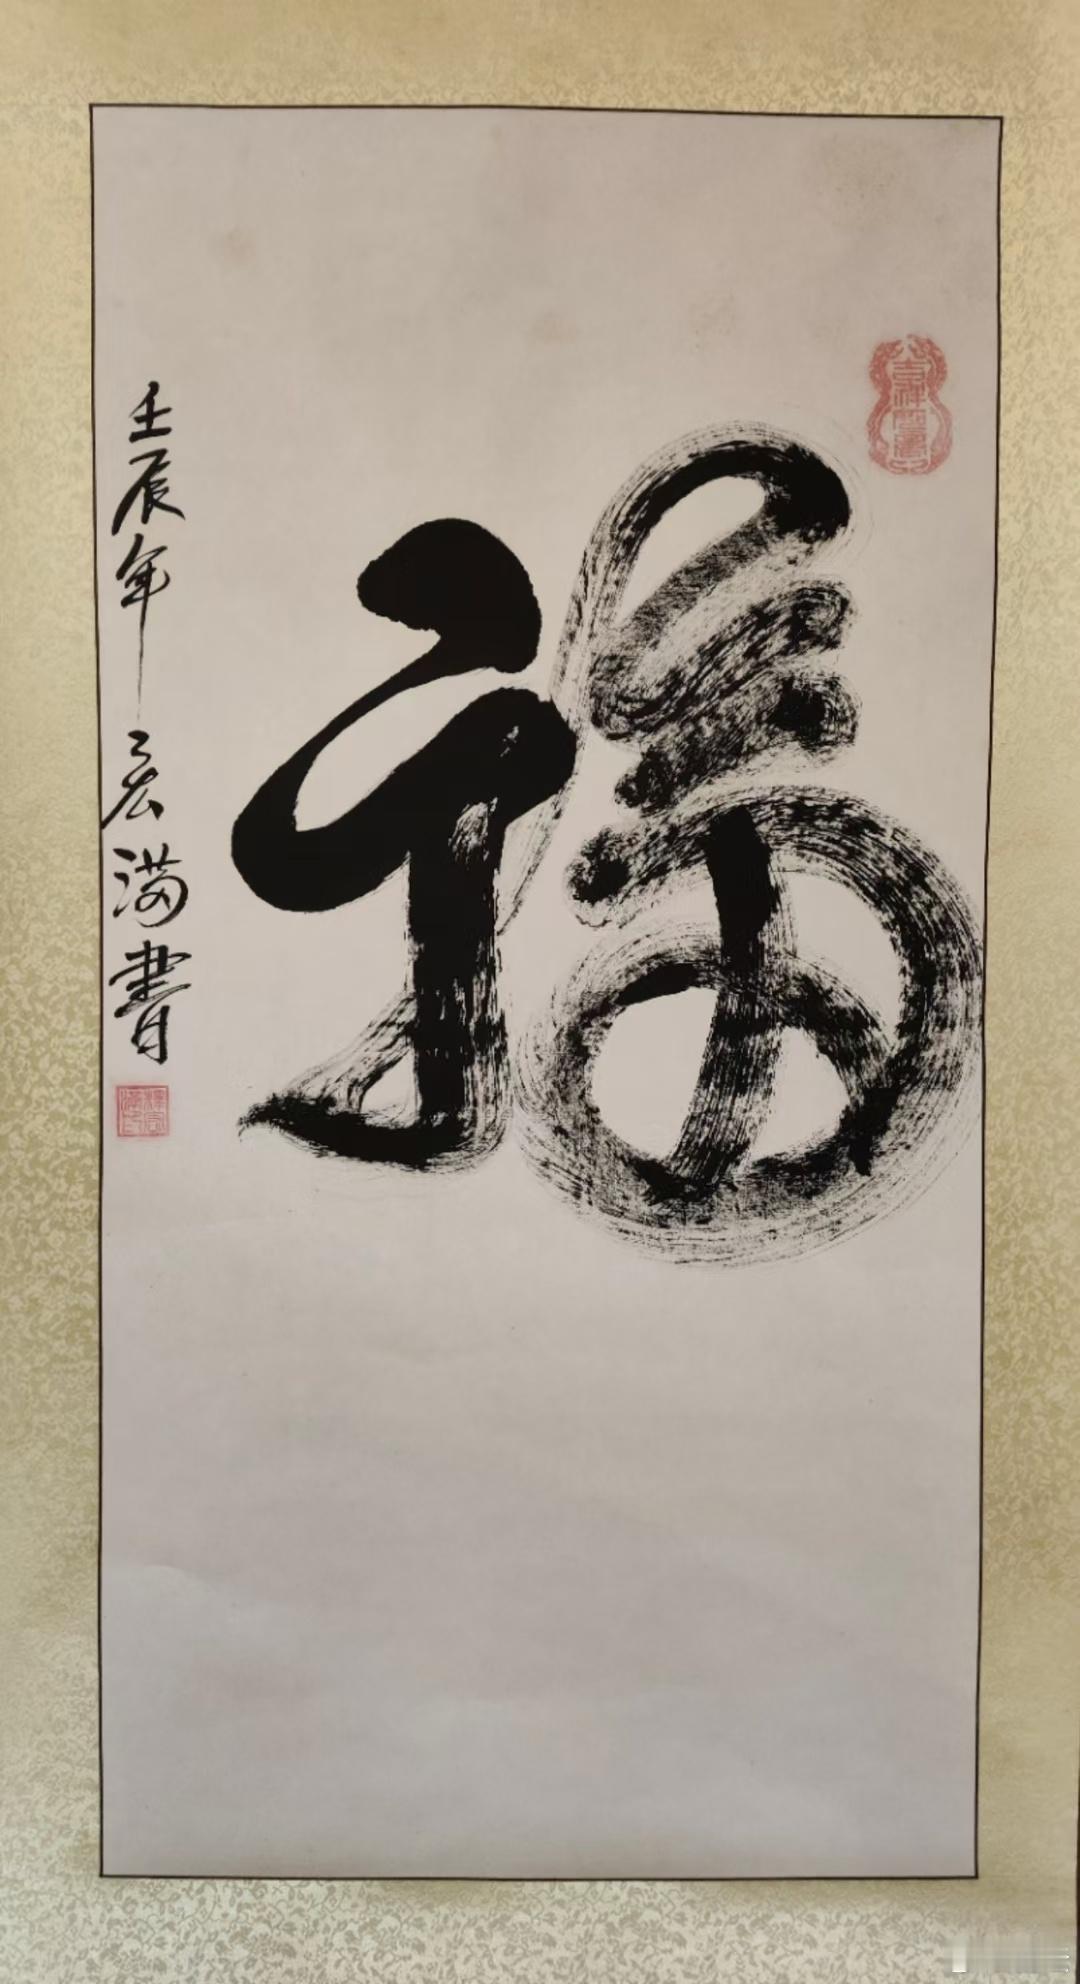 福
壬辰年 宏满書
吉祥